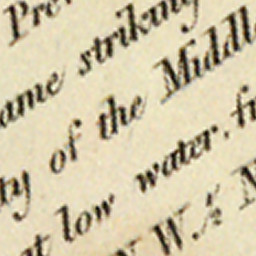 Pre
ame striking
ty of the Middl
at low water. fr
N W. ½ N